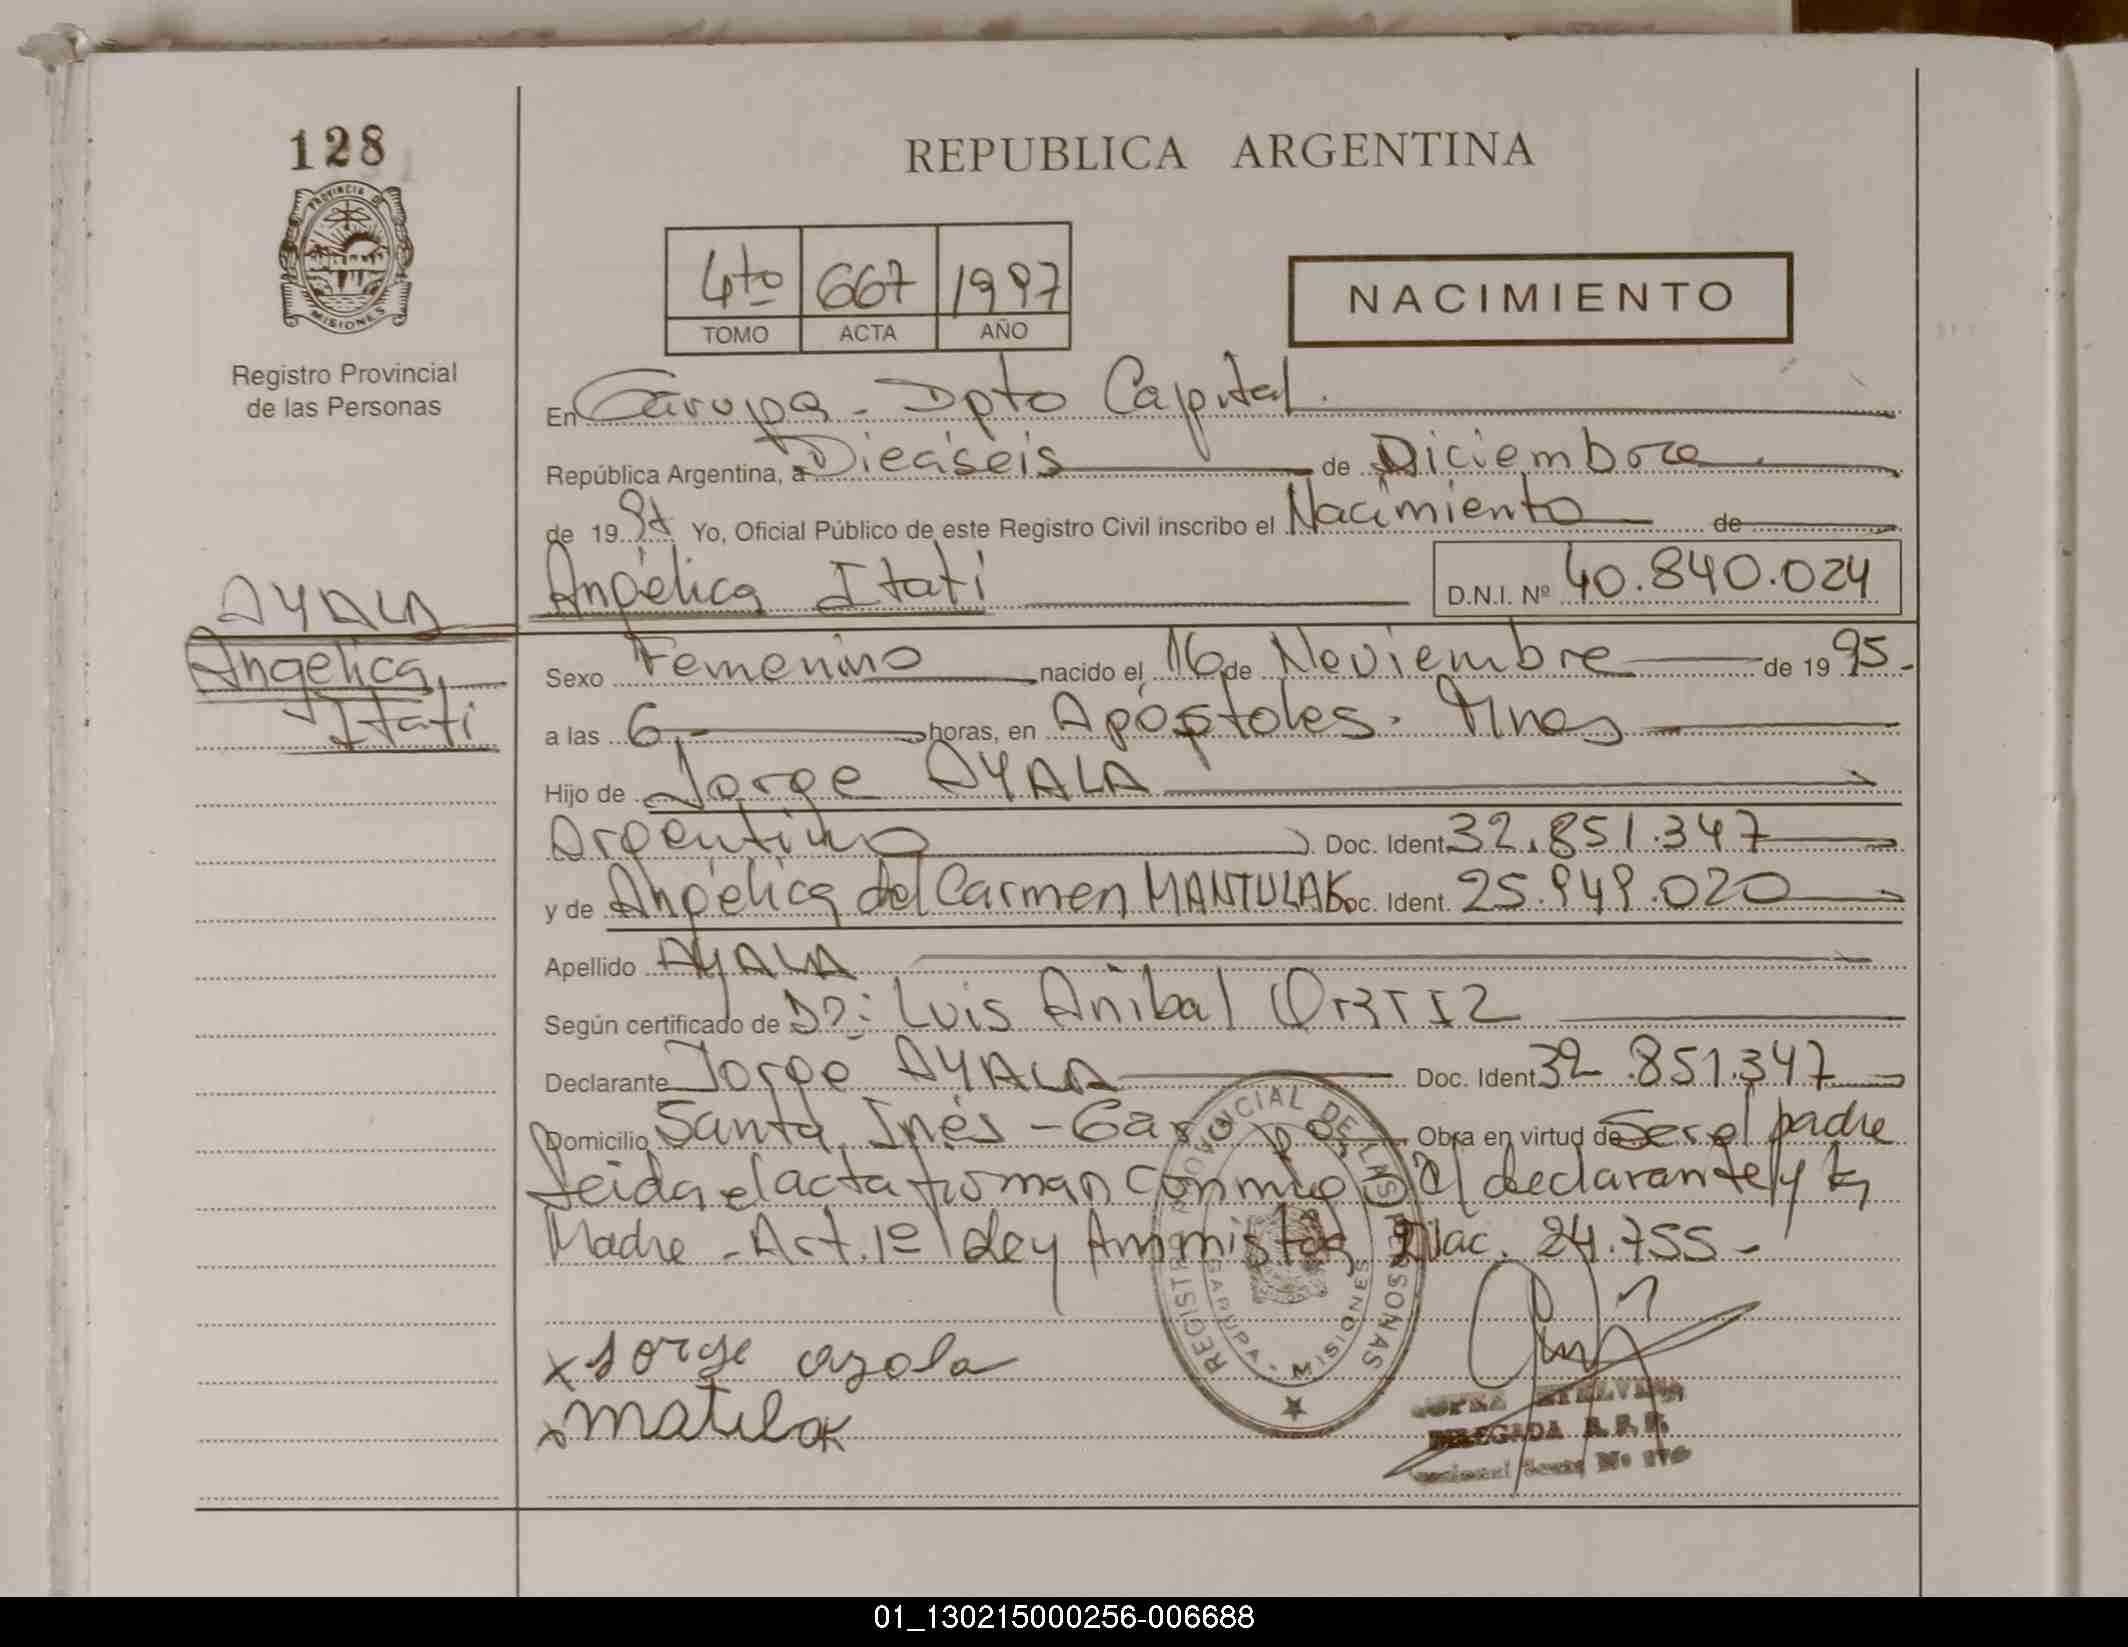 128
PROVINCIA DE
MISIONES
Registro Provincial
de las Personas
REPUBLICA ARGENTINA
4to 667 1997
TOMO ACTA AÑO
NACIMIENTO
En Garupa - Dpto Capital.
República Argentina, a Dieciseis de Diciembre
de 1997 Yo, Oficial Público de este Registro Civil inscribo el Nacimiento de
Angélica Itatí D.N.I. Nº 40.840.024
AYALA
Angelica
Itati
Sexo Femenino nacido el 16 de Noviembre de 1995.
a las 6,- horas, en Apóstoles. Mnes
Hijo de Jorge AYALA
Argentino Doc. Ident. 32.851.347
y de Angélica del Carmen MANTULAK Doc. Ident. 25.949.020
Apellido AYALA
Según certificado de Dr: Luis Anibal ORTIZ
Declarante Jorge AYALA Doc. Ident. 32.851.347
Domicilio Santa Inés - Garupa Obra en virtud de Ser el padre
Leida el acta firman conmigo el declarante y la
Madre - Art. 1º Ley Amnistia Nac. 24.755 -
REGISTRO PROVINCIAL DE LAS PERSONAS
GARUPA - MISIONES
x Jorge ayala
x matulak
DELEGADA R. P. P.
01_130215000256-006688